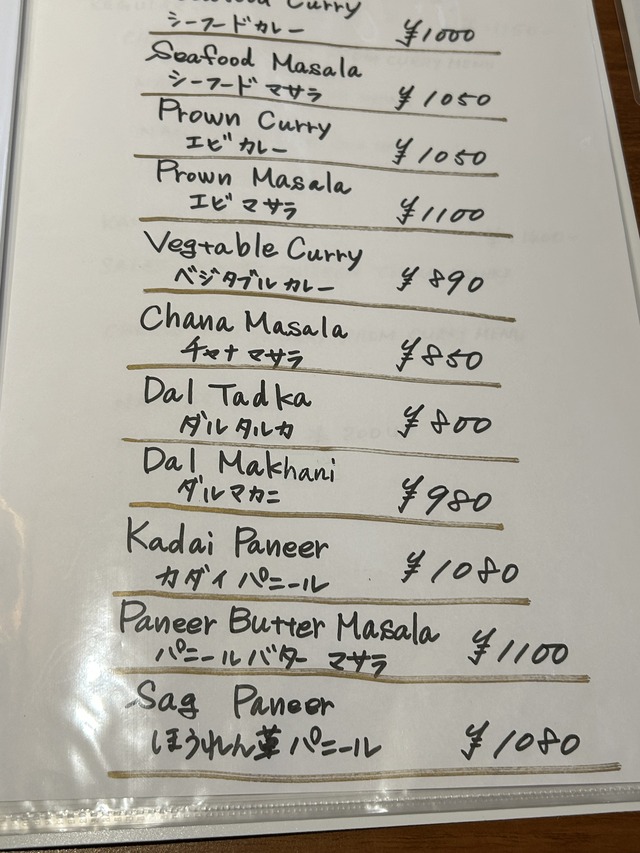 Curry
シーフードカレー ¥1000
Seafood Masala
シーフード マサラ ¥1050
Prown Curry
エビ カレー ¥1050
Prown Masala
エビ マサラ ¥1100
Vegtable Curry
ベジタブル カレー ¥890
Chana Masala
チャナ マサラ ¥850
Dal Tadka
ダル タルカ ¥800
Dal Makhani
ダル マカニ ¥980
Kadai Paneer
カダイ パニール ¥1080
Paneer Butter Masala
パニール バター マサラ ¥1100
Sag Paneer
ほうれん草 パニール ¥1080